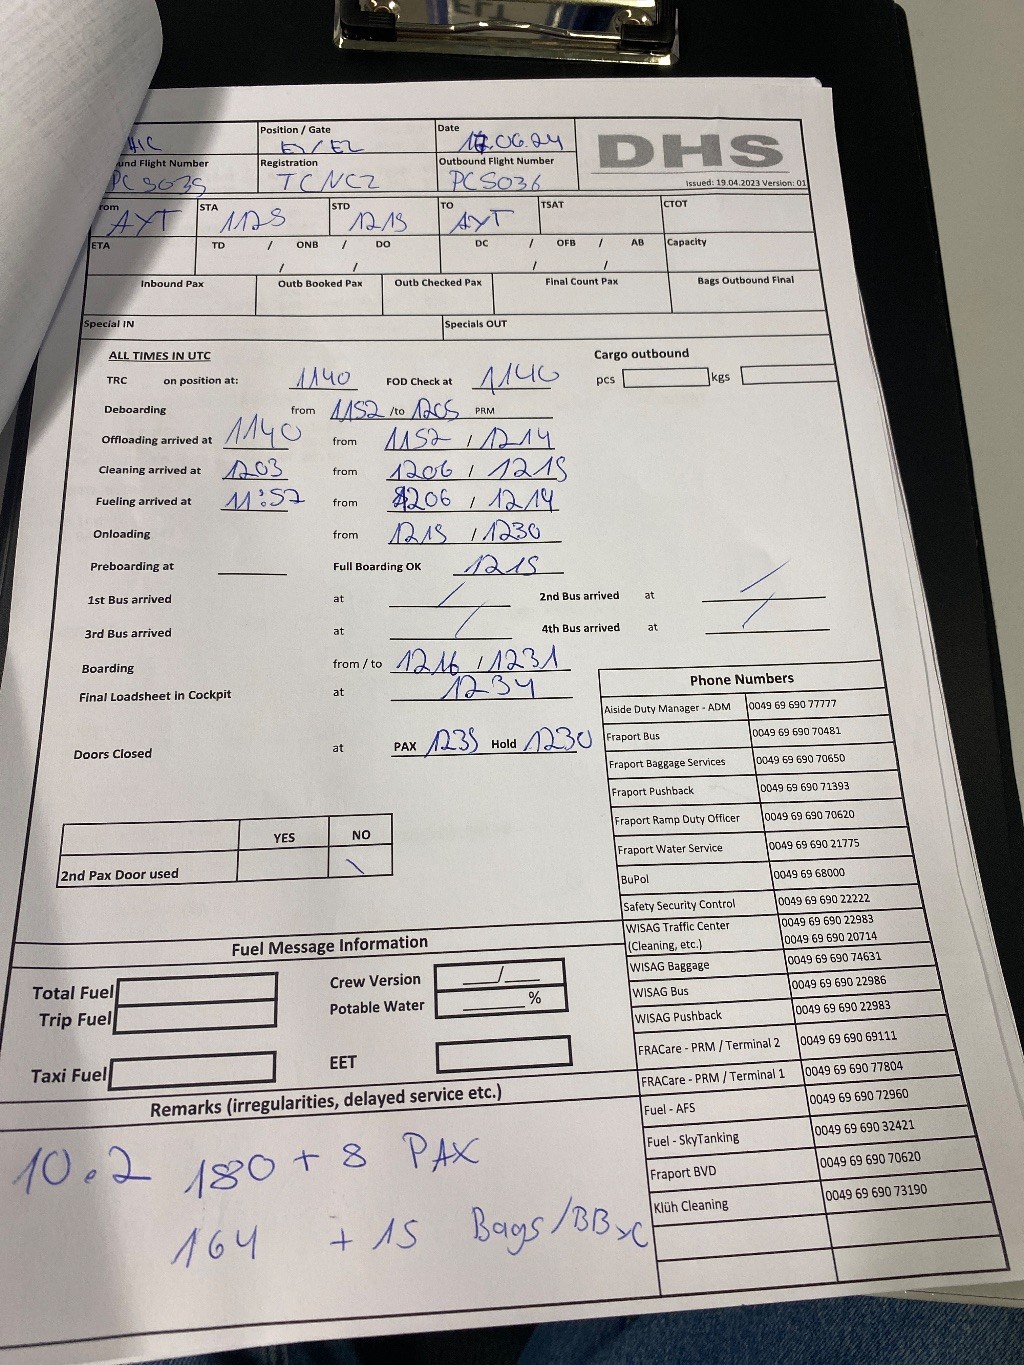 Position / Gate Date DHS
17.06.24
und Flight Number Registration Outbound Flight Number
PC5035 TCNCZ PC5036 Issued: 19.04.2023 Version: 01
rom STA STD TO TSAT CTOT
AYT 1125 1215 AYT
ETA TD / ONB / DO DC / OFB / AB Capacity
/ / / /
Inbound Pax Outb Booked Pax Outb Checked Pax Final Count Pax Bags Outbound Final
Special IN Specials OUT
ALL TIMES IN UTC Cargo outbound
TRC on position at: 1140 FOD Check at 1140 pcs kgs
Deboarding from 1152 /to 1205 PRM
Offloading arrived at 1140 from 1152 / 1214
Cleaning arrived at 1203 from 1206 / 1215
Fueling arrived at 11:57 from 1206 / 1214
Onloading from 1215 / 1230
Preboarding at Full Boarding OK 1215
1st Bus arrived at / 2nd Bus arrived at /
3rd Bus arrived at / 4th Bus arrived at /
Boarding from / to 1216 / 1231
Final Loadsheet in Cockpit at 1234
Doors Closed at PAX 1235 Hold 1230
Phone Numbers
Aiside Duty Manager - ADM 0049 69 690 77777
Fraport Bus 0049 69 690 70481
Fraport Baggage Services 0049 69 690 70650
Fraport Pushback 0049 69 690 71393
Fraport Ramp Duty Officer 0049 69 690 70620
Fraport Water Service 0049 69 690 21775
BuPol 0049 69 68000
Safety Security Control 0049 69 690 22222
WISAG Traffic Center 0049 69 690 22983
(Cleaning, etc.) 0049 69 690 20714
WISAG Baggage 0049 69 690 74631
WISAG Bus 0049 69 690 22986
WISAG Pushback 0049 69 690 22983
FRACare - PRM / Terminal 2 0049 69 690 69111
FRACare - PRM / Terminal 1 0049 69 690 77804
Fuel - AFS 0049 69 690 72960
Fuel - SkyTanking 0049 69 690 32421
Fraport BVD 0049 69 690 70620
Klüh Cleaning 0049 69 690 73190
YES NO
2nd Pax Door used \
Fuel Message Information
Total Fuel Crew Version /
Trip Fuel Potable Water %
Taxi Fuel EET
Remarks (irregularities, delayed service etc.)
10.2 180 + 8 PAX
164 + 15 Bags/BB